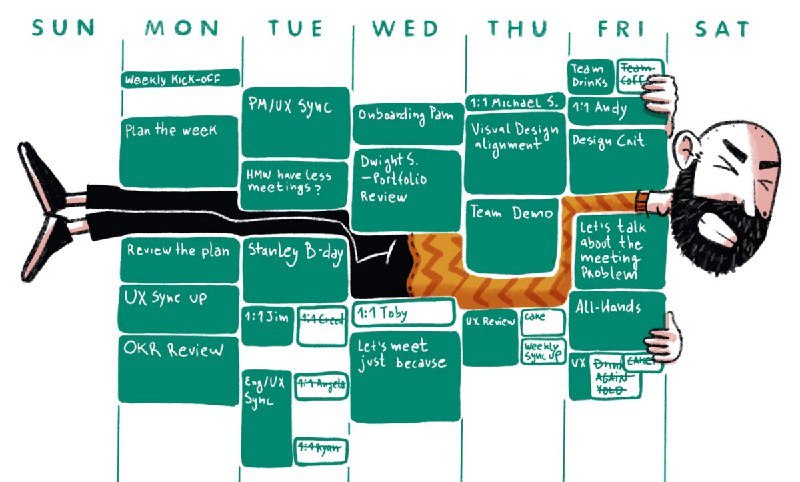 SUN MON TUE WED THU FRI SAT
Weekly Kick-off
Plan the week
Review the plan
UX Sync up
OKR Review
PM/UX Sync
HMW have less
meetings?
Stanley B-day
1:1 Jim
1:1 Creed
Eng/UX
Sync
1:1 Angela
1:1 Ryan
Onboarding Pam
Dwight S.
–Portfolio
Review
1:1 Toby
Let's meet
just because
1:1 Michael S.
Visual Design
alignment
Team Demo
UX Review
cake
Weekly
Sync up
Team
Drinks
Team
1:1 Andy
Design Crit
Let's talk
about the
meeting
Problem
All-Hands
UX
Drink
AGAIN
YOLO